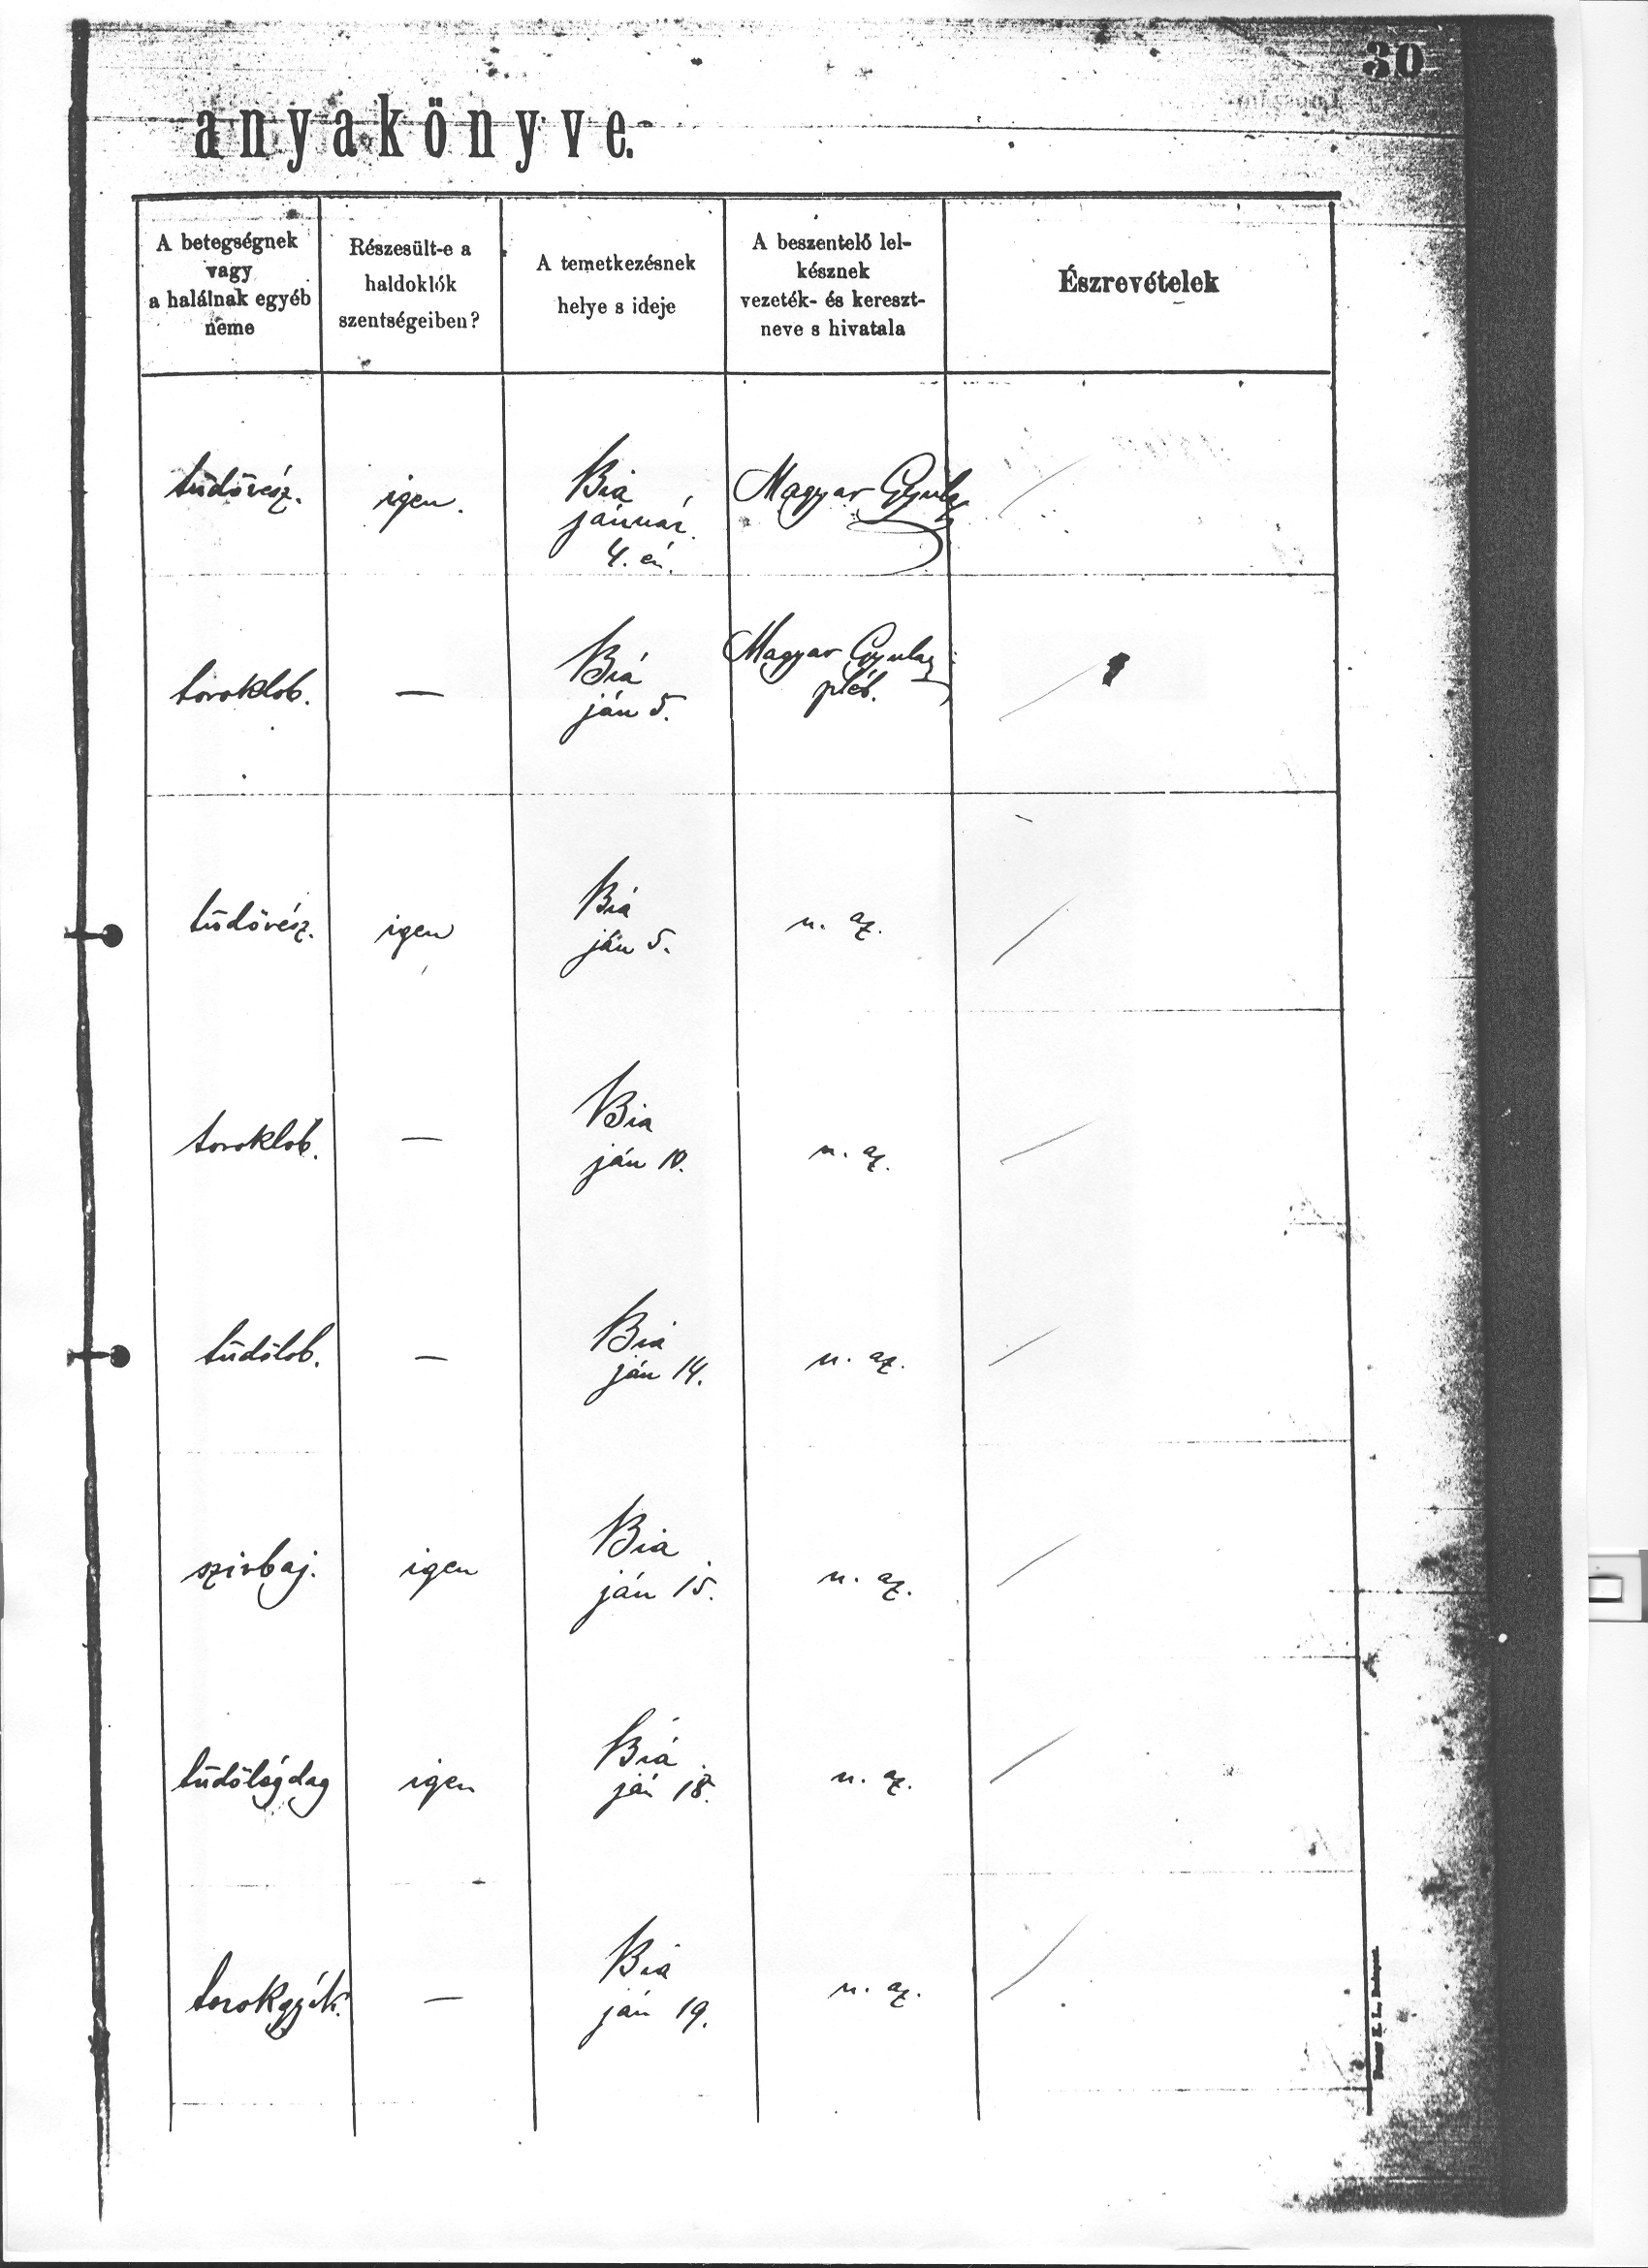 30
anyakönyve.
A betegségnek
vagy
a halálnak egyéb
neme
Részesült-e a
haldoklók
szentségeiben?
A temetkezésnek
helye s ideje
A beszentelő lel-
késznek
vezeték- és kereszt-
neve s hivatala
Észrevételek
tüdővész.
igen.
Bia
január
4. én.
Magyar Gyula
toroklob.
—
Biá
ján 5.
Magyar Gyula
pléb.
tüdővész.
igen
Biá
ján 5.
u. az.
toroklob.
—
Bia
ján 10.
u. az.
tüdőlob.
—
Bia
ján 14.
u. az.
szivbaj.
igen
Bia
ján 15.
u. az.
tüdőlégdag
igen
Biá
ján 18.
u. az.
torokgyík.
—
Bia
ján 19.
u. az.